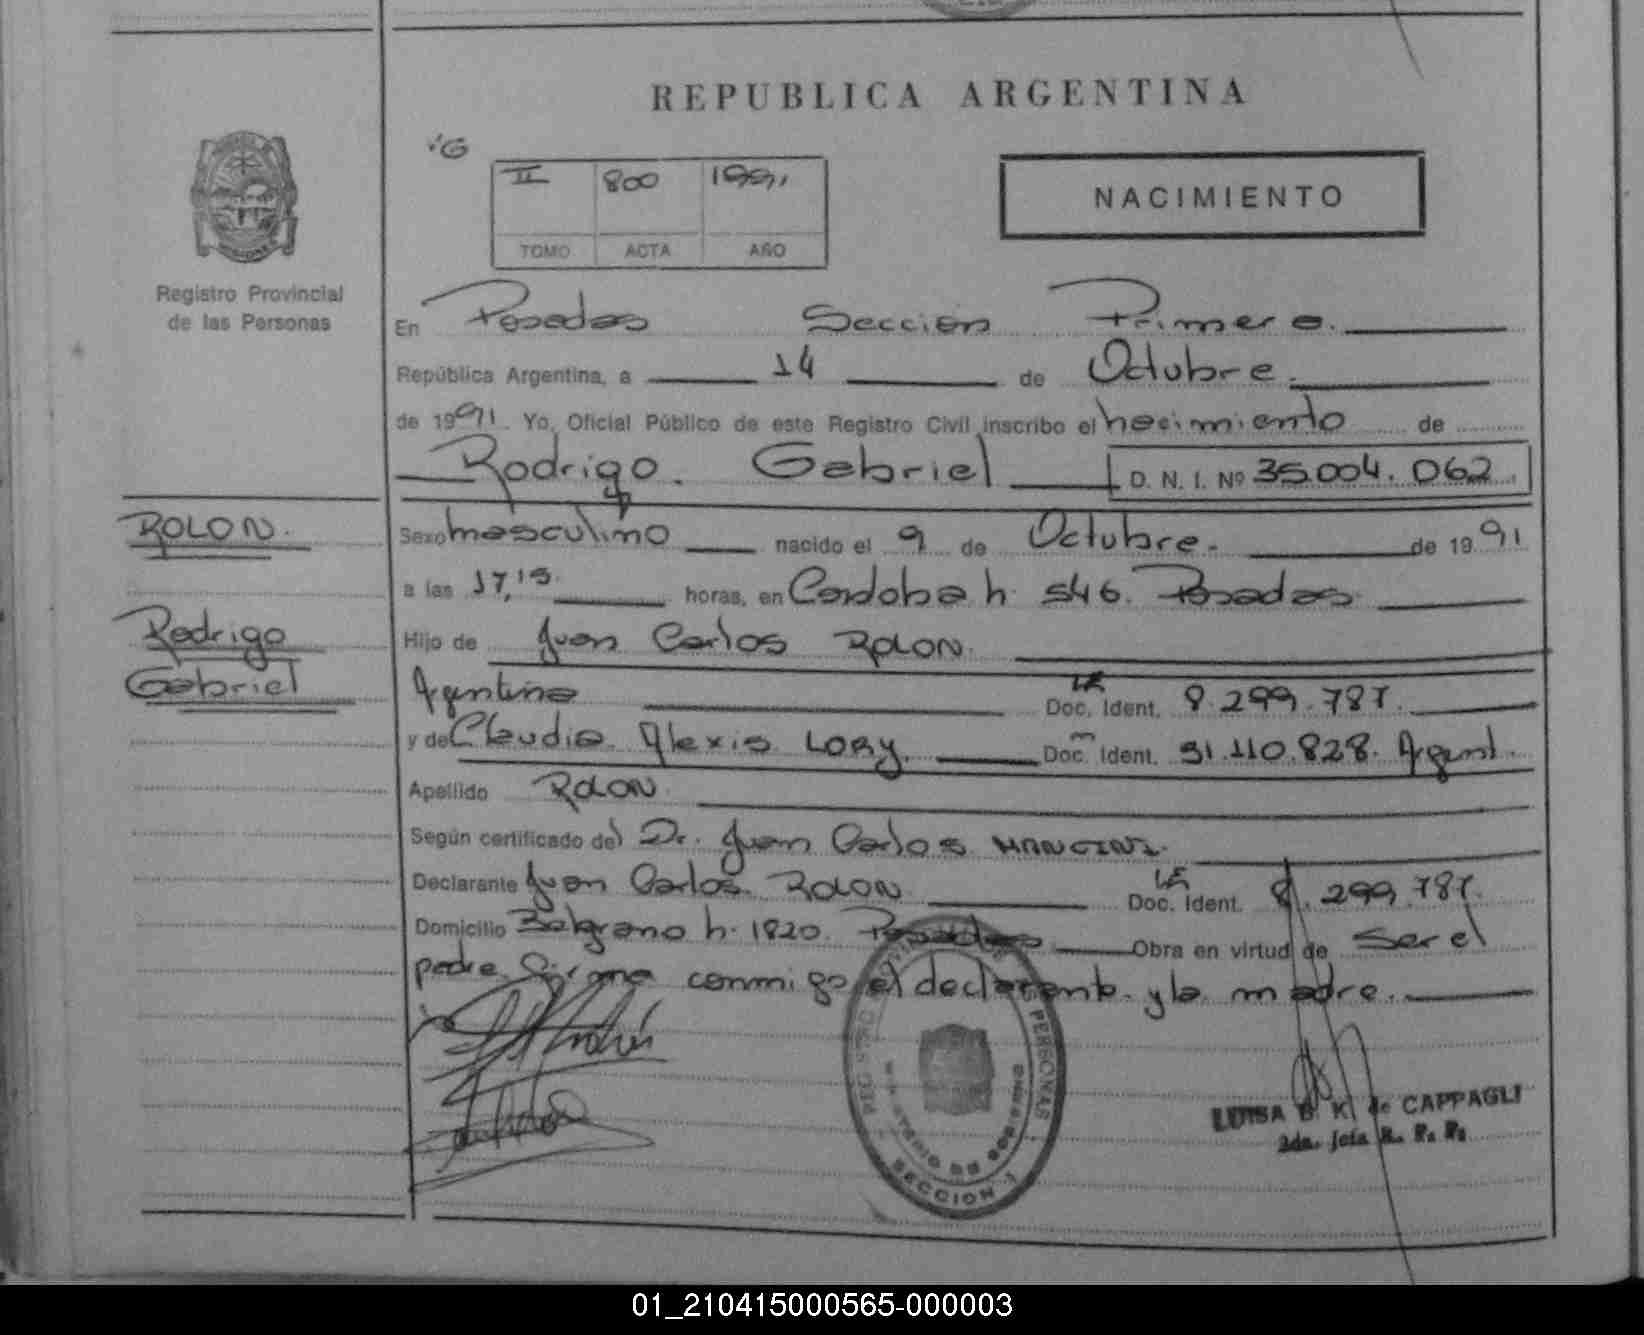 REPUBLICA ARGENTINA
II 800 1991
TOMO ACTA AÑO
NACIMIENTO
Registro Provincial
de las Personas
En Posadas Seccion Primera.
República Argentina, a 14 de Octubre.
de 1991. Yo, Oficial Público de este Registro Civil inscribo el nacimiento de
Rodrigo. Gabriel D. N. I. Nº 35.004.062.
ROLON.
Rodrigo
Gabriel
Sexo masculino nacido el 9 de Octubre. de 1991
a las 17,15. horas, en Cordoba n. 546. Posadas.
Hijo de Juan Carlos ROLON.
Argentino Doc. Ident. 8.299.787.
y de Claudia. Alexis LORY. Doc. Ident. 31.110.828. Argent.
Apellido ROLON.
Según certificado del Dr. Juan Carlos MANCINI.
Declarante Juan Carlos. ROLON. Doc. Ident. 8.299.787.
Domicilio Belgrano n. 1820. Posadas Obra en virtud de Ser el
padre. Firma conmigo el declarante y la madre.
PERSONAS
SECCION 1
LUISA B. K. de CAPPAGLI
2da. Jefa R. P. P.
01_210415000565-000003